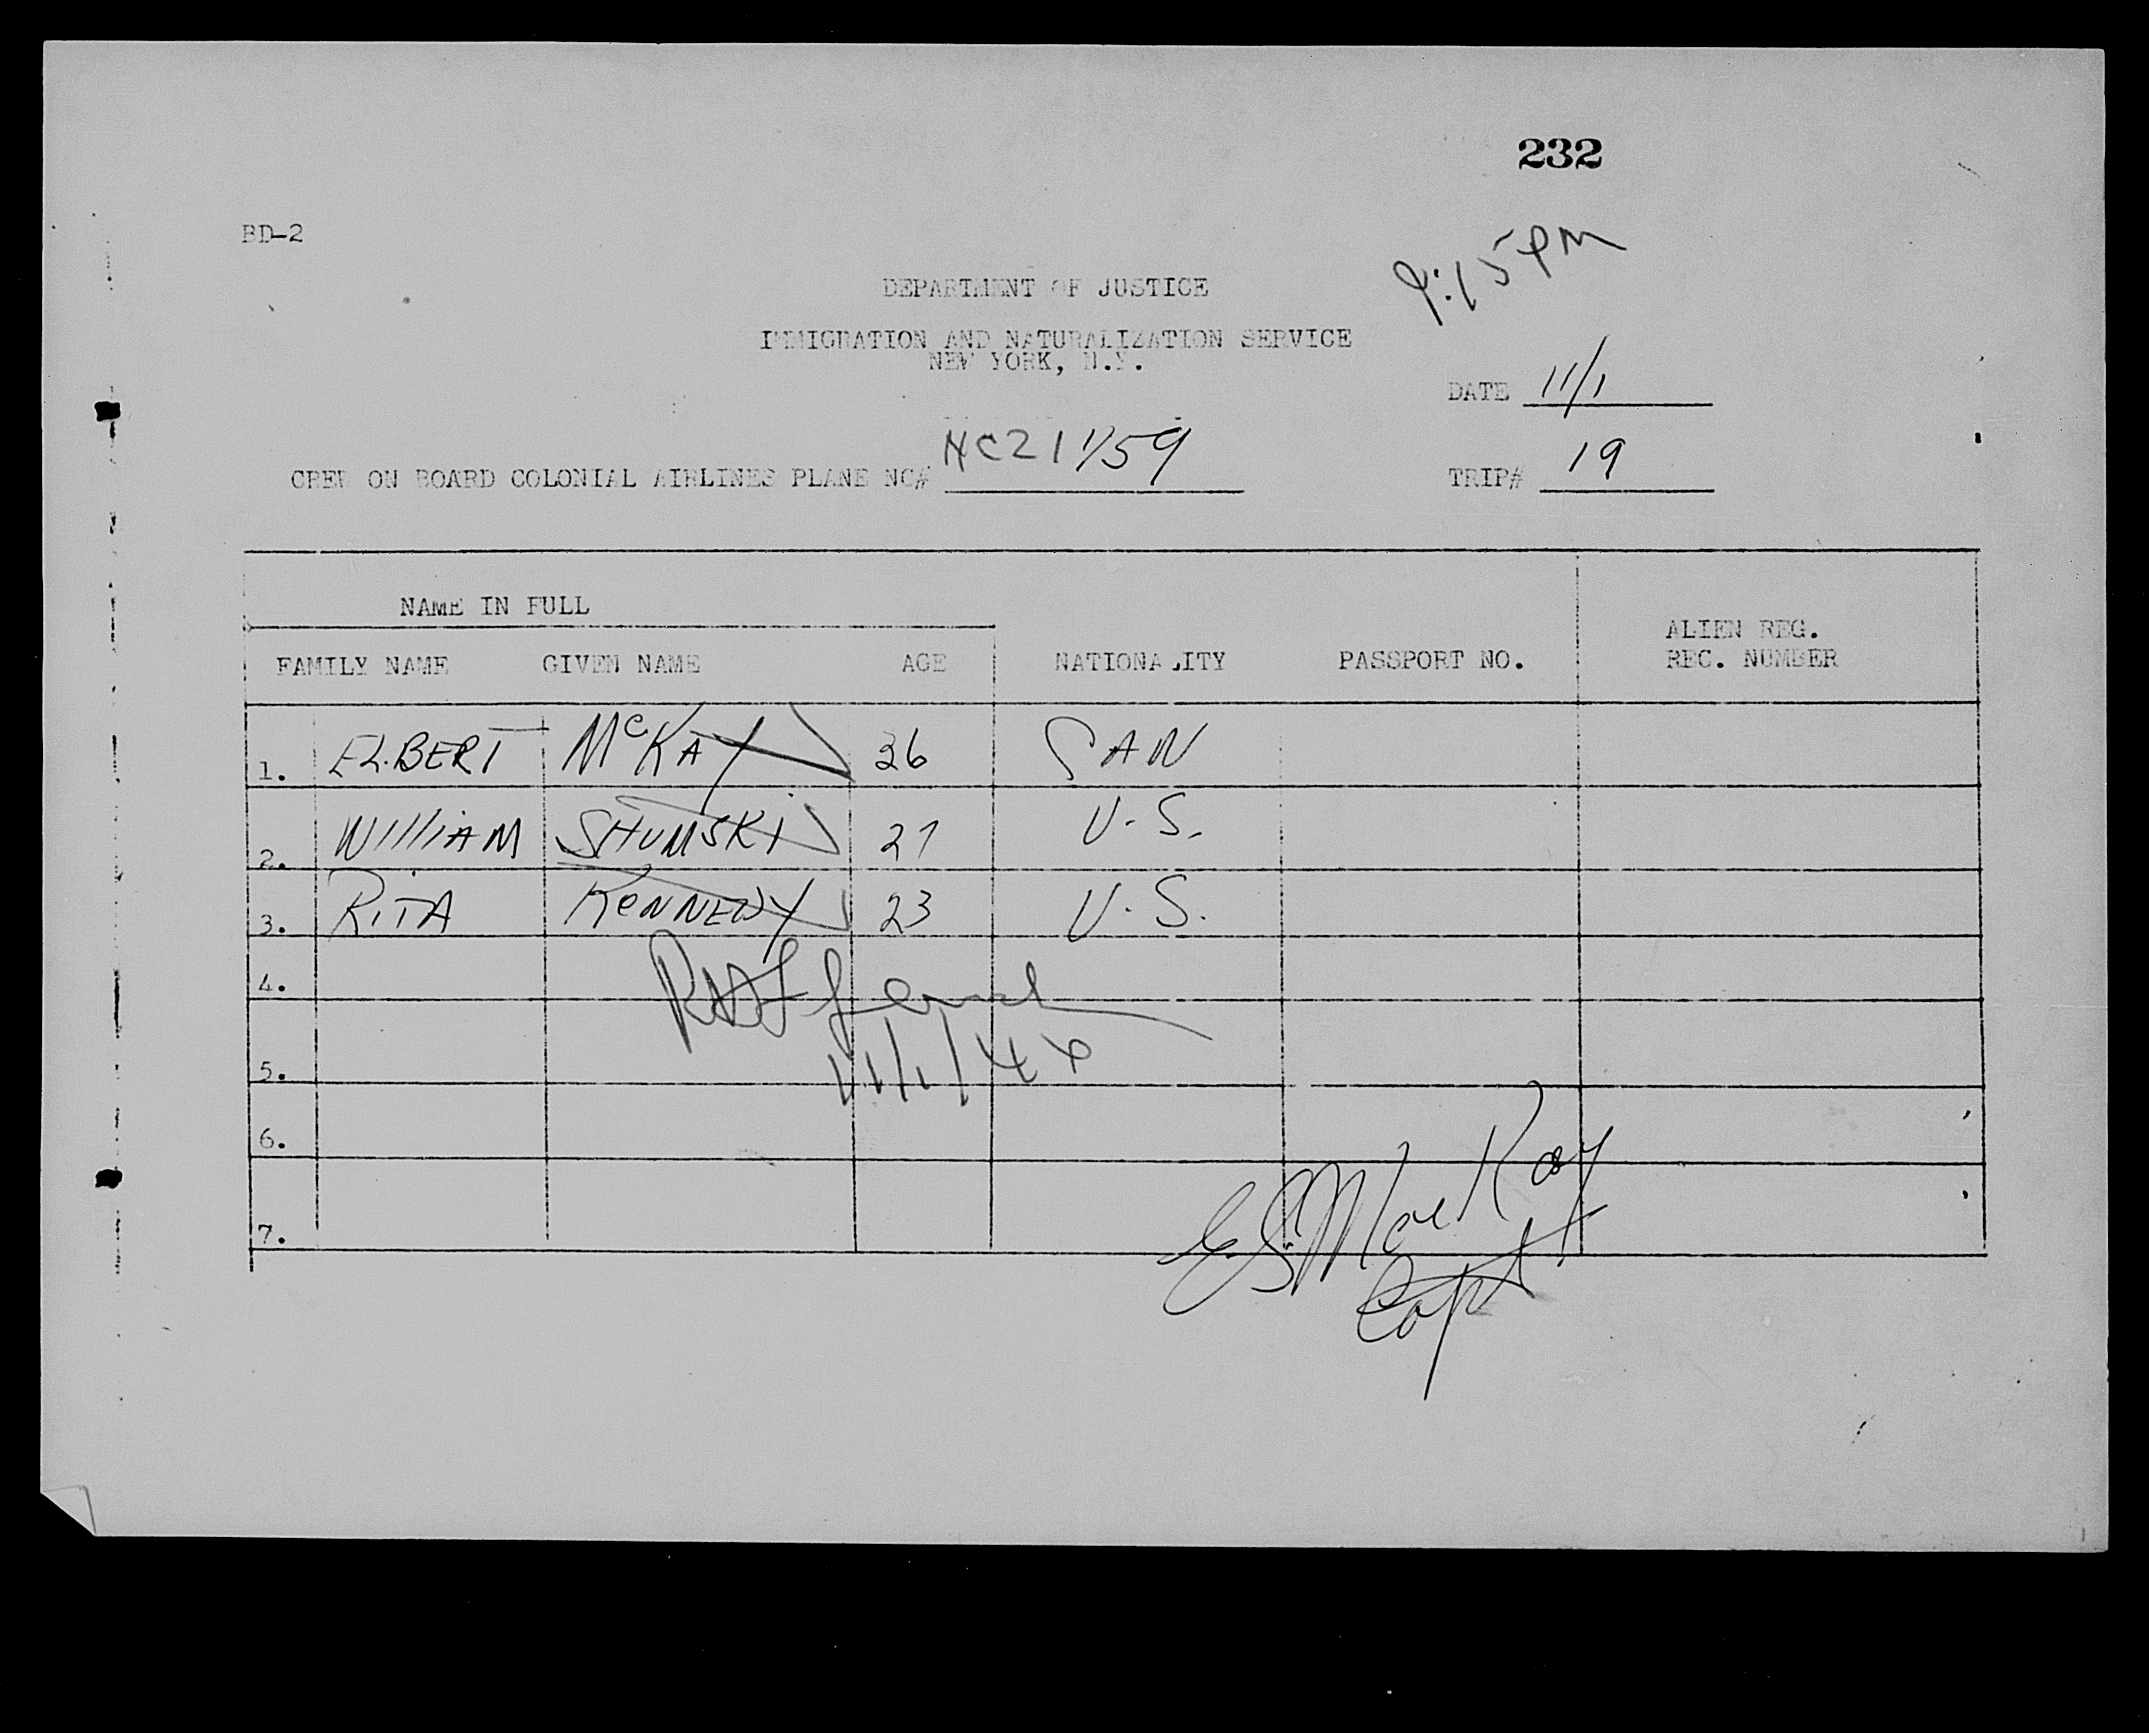 232
BD-2
9:15 PM
DEPARTMENT OF JUSTICE
IMMIGRATION AND NATURALIZATION SERVICE
NEW YORK, N.Y.
DATE 11/1
CREW ON BOARD COLONIAL AIRLINES PLANE NC# NC21759
TRIP# 19
NAME IN FULL
FAMILY NAME GIVEN NAME AGE NATIONALITY PASSPORT NO. ALIEN REG. REC. NUMBER
1. ELBERT McKAY 26 CAN
2. WILLIAM SHUMSKI 27 U.S.
3. RITA KENNEDY 23 U.S.
4.
11/1/44
5.
6.
7.
E.S. MacKay
Capt